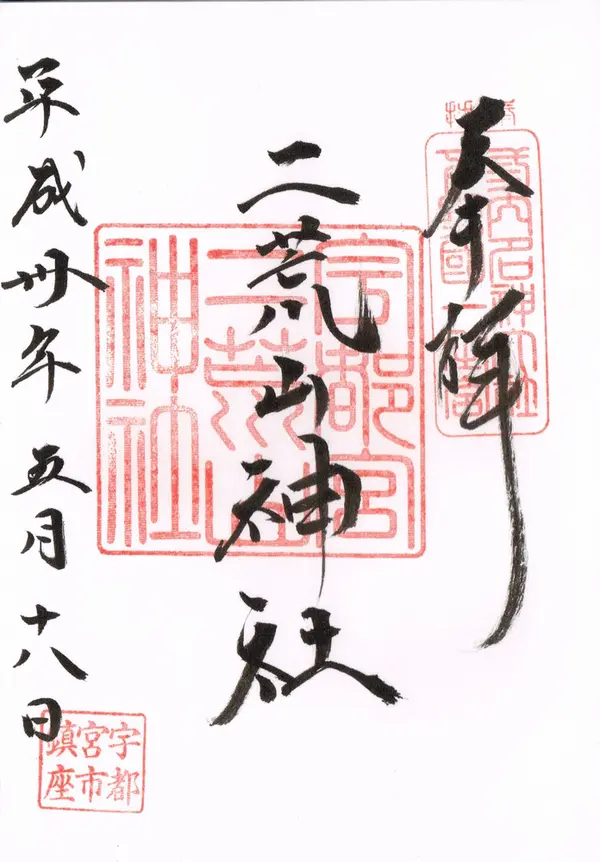 奉拝
二荒山神社
平成卅年五月十八日
宇都宮
二荒山
神社
宇都
宮市
鎮座